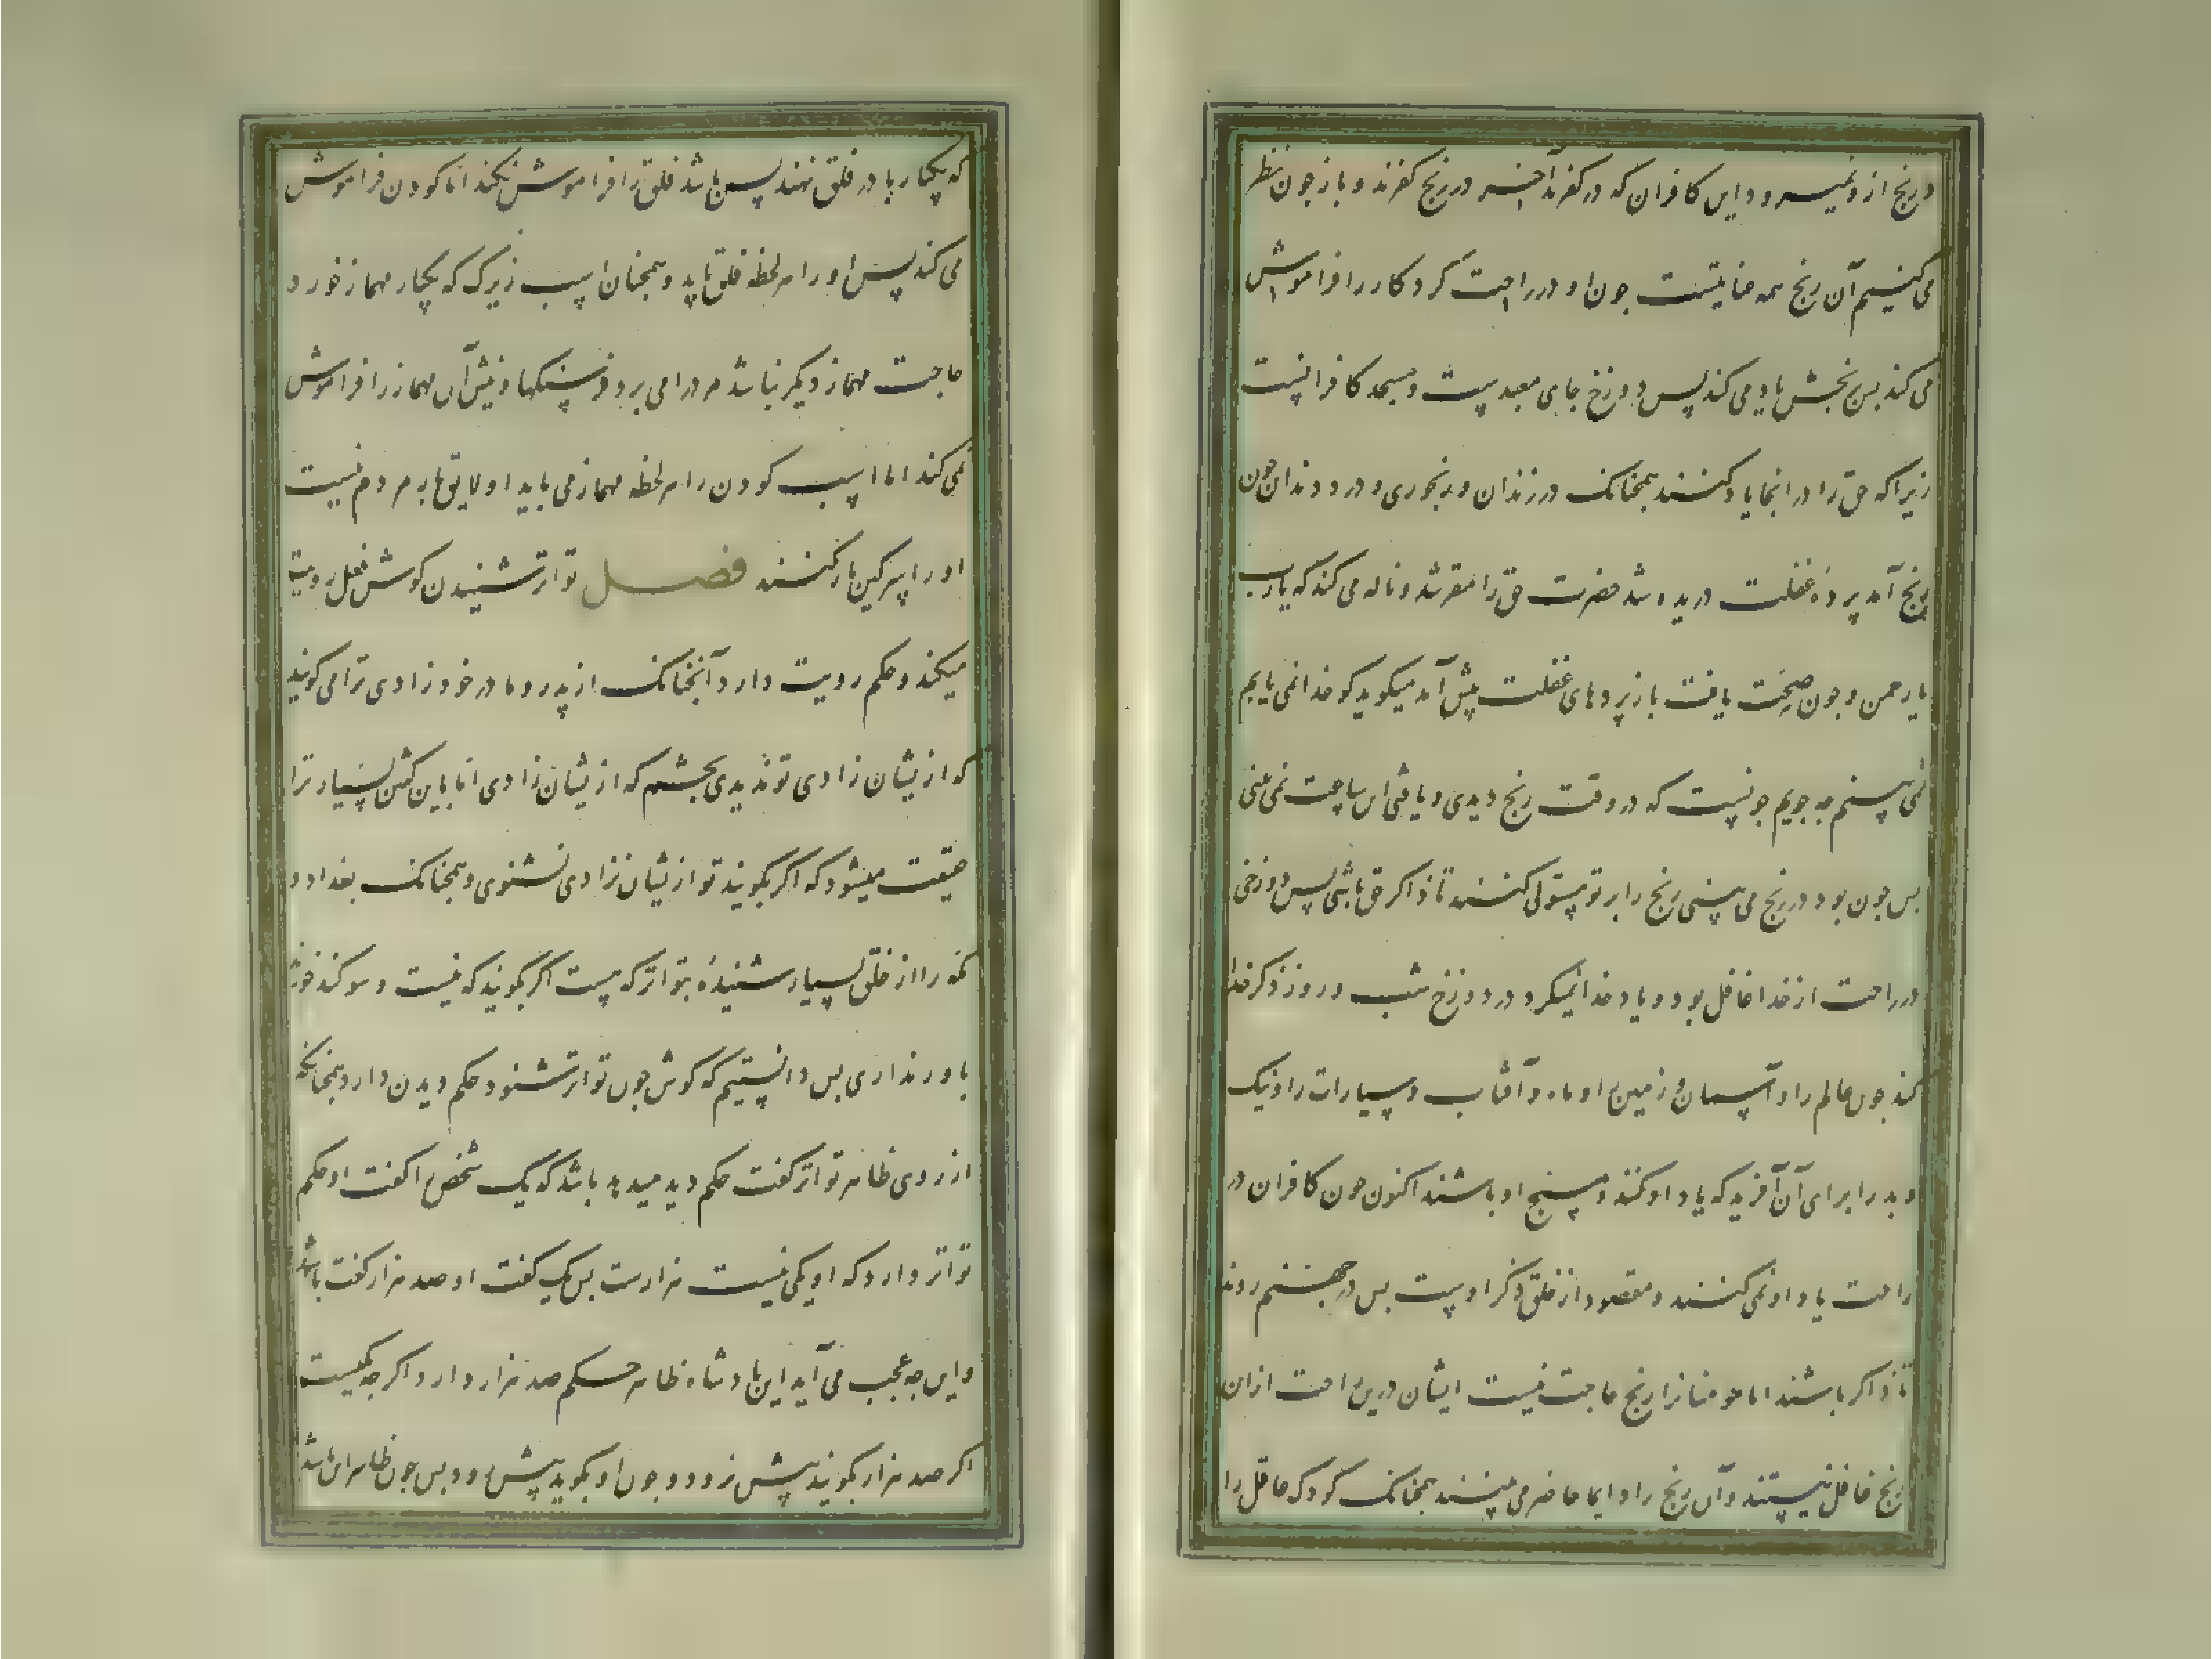 و رنج ازو نمیرود و این کافران که در کفرند آخر در رنج کفرند و باز چون نظر
می کنیم آن رنج همه عنایتست چون او در راحت کردکار را فراموش
می کند برنجش یاد می کند پس دوزخ جای معبدست و مسجد کافرانست
زیرا که حق را در انجا یاد کنند همچنانک در زندان و رنجوری و درد دندان چون
رنج آمد پرده غفلت دریده شد حضرت حق را مقر شد و ناله می کند که یا رب
یا رحمن و چون صحت یافت باز پردهای غفلت پیش آمد میکوید کو خدا نمی یابم
نمی بینم چه جویم چونست که در وقت رنج دیدی و یافتی این ساعت نمی بینی
بس چون بود در رنج می بینی رنج را بر تو مستولی کنند تا ذاکر حق باشی پس دوزخی
در راحت از خدا غافل بود و یاد خدا نمیکرد در دوزخ شب و روز ذکر خدا
کند چون عالم را و آسمان و زمین را و ماه و آفتاب و سیارات را و نیک
و بد را برای آن آفرید که یاد او کنند و مسبح او باشند اکنون چون کافران در
راحت یاد او نمی کنند و مقصود از خلق ذکر اوست بس در جهنم روند
تا ذاکر باشند اما مومنانرا رنج حاجت نیست ایشان درین راحت ازان
رنج غافل نیستند و آن رنج را دایما حاضر می بینند همچنانک کودک عاقل را
که یکبار پا در فلق نهند بس باشد فلق را فراموش نکند اما کودن فراموش
می کند پس او را هر لحظه فلق باید و همچنان اسب زیرک که یکبار مهماز خورد
حاجت مهماز دیکر نباشد مرد را می برد فرسنکها و نیش آن مهماز را فراموش
نمی کند اما اسب کودن را هر لحظه مهماز می باید او لایق بار مردم نیست
او را سرکین بار کنند فصل تواتر شنیدن کوش فعل رویت
میکند و حکم رویت دارد آنچنانک از پدر و مادر خود زادی ترا می کویند
که ازیشان زادی تو ندیدی بچشم که ازیشان زادی اما باین کفتن بسیار ترا
حقیقت میشود که اکر بکویند تو ازیشان نزادی نشنوی و همچنانک بغداد و
مکه را از خلق بسیار شنیده بتواتر که هست اکر بکویند که نیست و سوکند خورند
باور نداری بس دانستیم که کوش چون تواتر شنود حکم دیدن دارد همچنانکه
از روی ظاهر تواتر کفت حکم دید میدهد باشد که یک شخص را کفت او حکم
تواتر دارد که او یکی نیست هزارست بس یک کفت او صد هزار کفت باشد
و این چه عجب می آید این پادشاه ظاهر حکم صد هزار دارد اکر چه یکیست
اکر صد هزار بکویند پیش نرود و چون او بکوید پیش رود بس چون در ظاهر این باشد